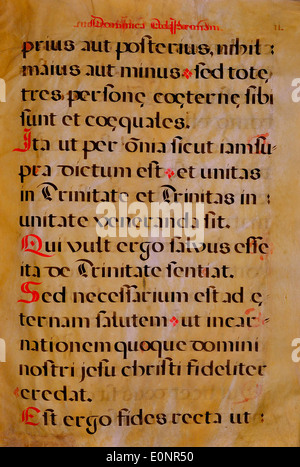 prius aut posterius, nihil
maius aut minus sed tote
tres, persone coęternę sibi
sunt et coęquales.
Ita ut per oñia sicut iam su
pra dictum est et unitas
in Trinitate et Trinitas in
unitate veneranda sit.
Qui vult ergo salvus esse
ita de Trinitate sentiat.
Sed necessarium est ad ę
ternam salutem ut incar
nationem quoque domini
nostri jesu christi fideliter
credat.
Est ergo fides recta ut
alamy stock photo
E0NR50
www.alamy.com